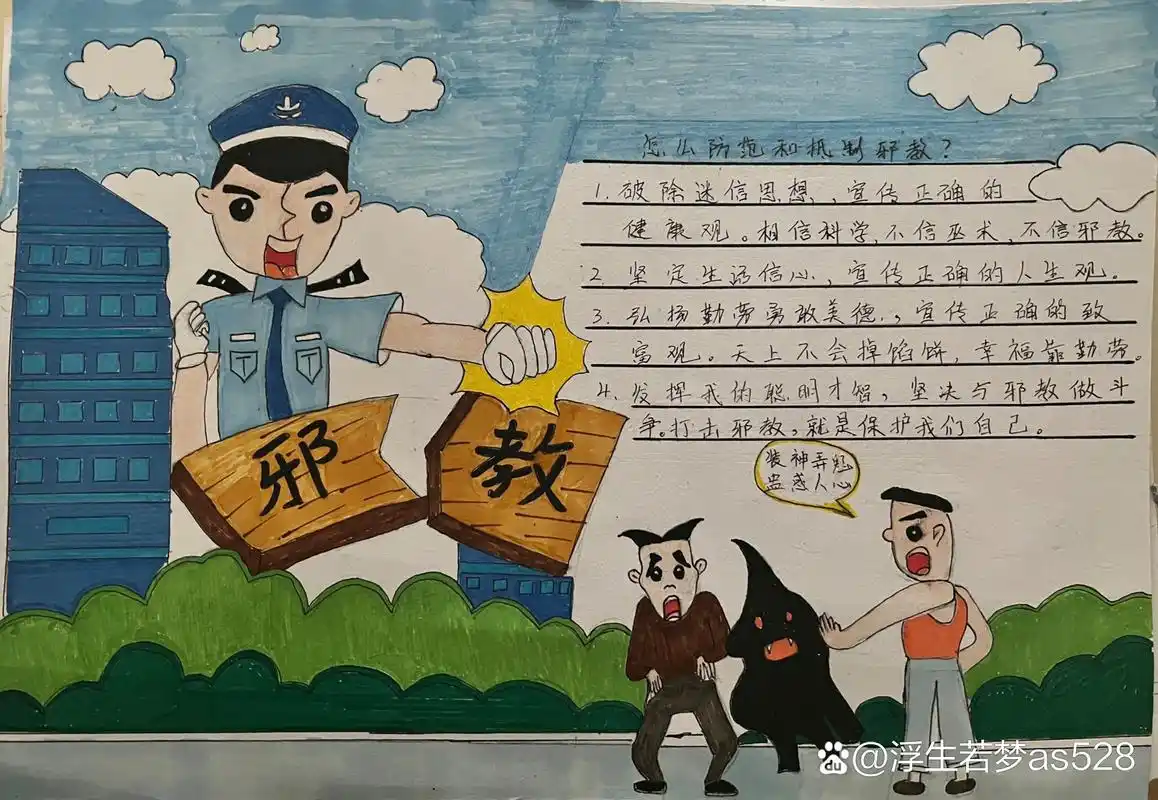 怎么防范和抵制邪教?
1. 破除迷信思想,宣传正确的
健康观。相信科学,不信巫术,不信邪教。
2. 坚定生活信心,宣传正确的人生观。
3. 弘扬勤劳勇敢美德,宣传正确的致
富观。天上不会掉馅饼,幸福靠勤劳。
4. 发挥我的聪明才智,坚决与邪教做斗
争。打击邪教,就是保护我们自己。
邪教
装神弄鬼
蛊惑人心
du @浮生若梦as528